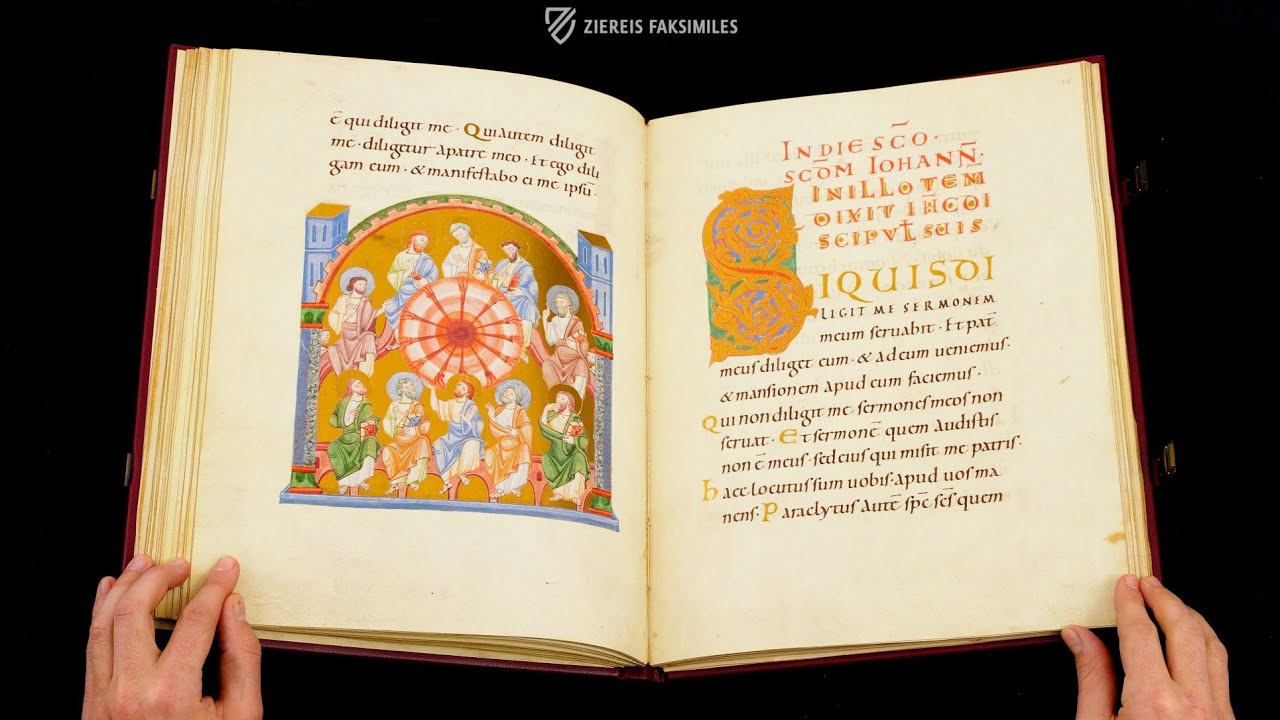 ZIEREIS FAKSIMILES
ē qui diligit me · Qui autem diligit
me · diligetur a patre meo · Et ego dili
gam eum · & manifestabo ei me ipsū ·
IN DIE SC̄O ·
SC̄ŌM IOHANN̄ ·
IN ILLO TEM̄
DIXIT IH̄C DI
SCIPVŁ SUIS
SIQUIS DI
LIGIT ME SERMONEM
meum servabit · Et pat̄
meus diliget eum · & ad eum veniemus ·
& mansionem apud eum faciemus ·
Qui non diligit me sermones meos non
servat · Et sermonē quem audistis
non ē meus · sed eius qui misit me patris ·
haec locutus sum vobis · apud vos ma
nens · Paraclytus autē sp̄c sc̄s quem